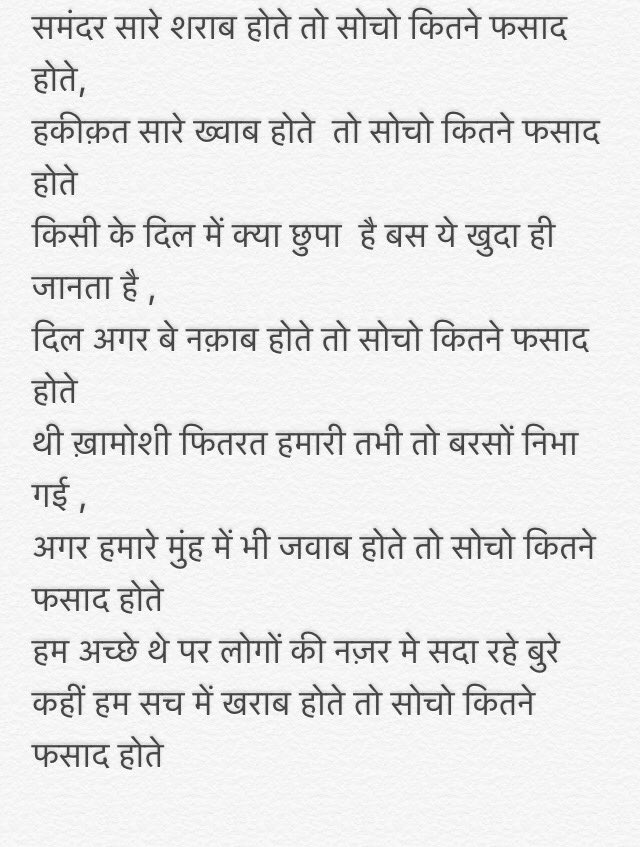 समंदर सारे शराब होते तो सोचो कितने फसाद
होते,
हकीक़त सारे ख्वाब होते  तो सोचो कितने फसाद
होते
किसी के दिल में क्या छुपा  है बस ये खुदा ही
जानता है ,
दिल अगर बे नक़ाब होते तो सोचो कितने फसाद
होते
थी ख़ामोशी फितरत हमारी तभी तो बरसों निभा
गई ,
अगर हमारे मुंह में भी जवाब होते तो सोचो कितने
फसाद होते
हम अच्छे थे पर लोगों की नज़र मे सदा रहे बुरे
कहीं हम सच में खराब होते तो सोचो कितने
फसाद होते